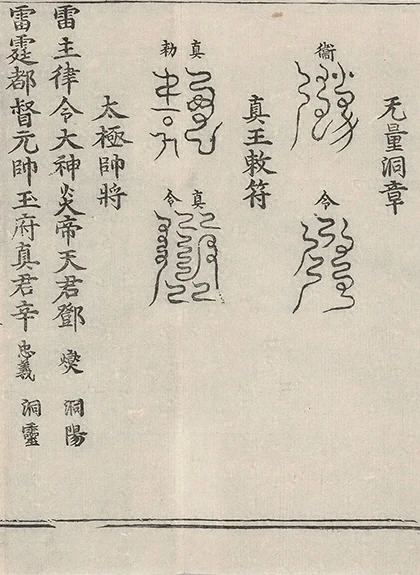 无量洞章
衞
令
真王敕符
真勑
真令
太極帥將
雷主律令大神炎帝天君鄧 燮 洞陽
雷霆都督元帥玉府真君辛 忠義 洞靈